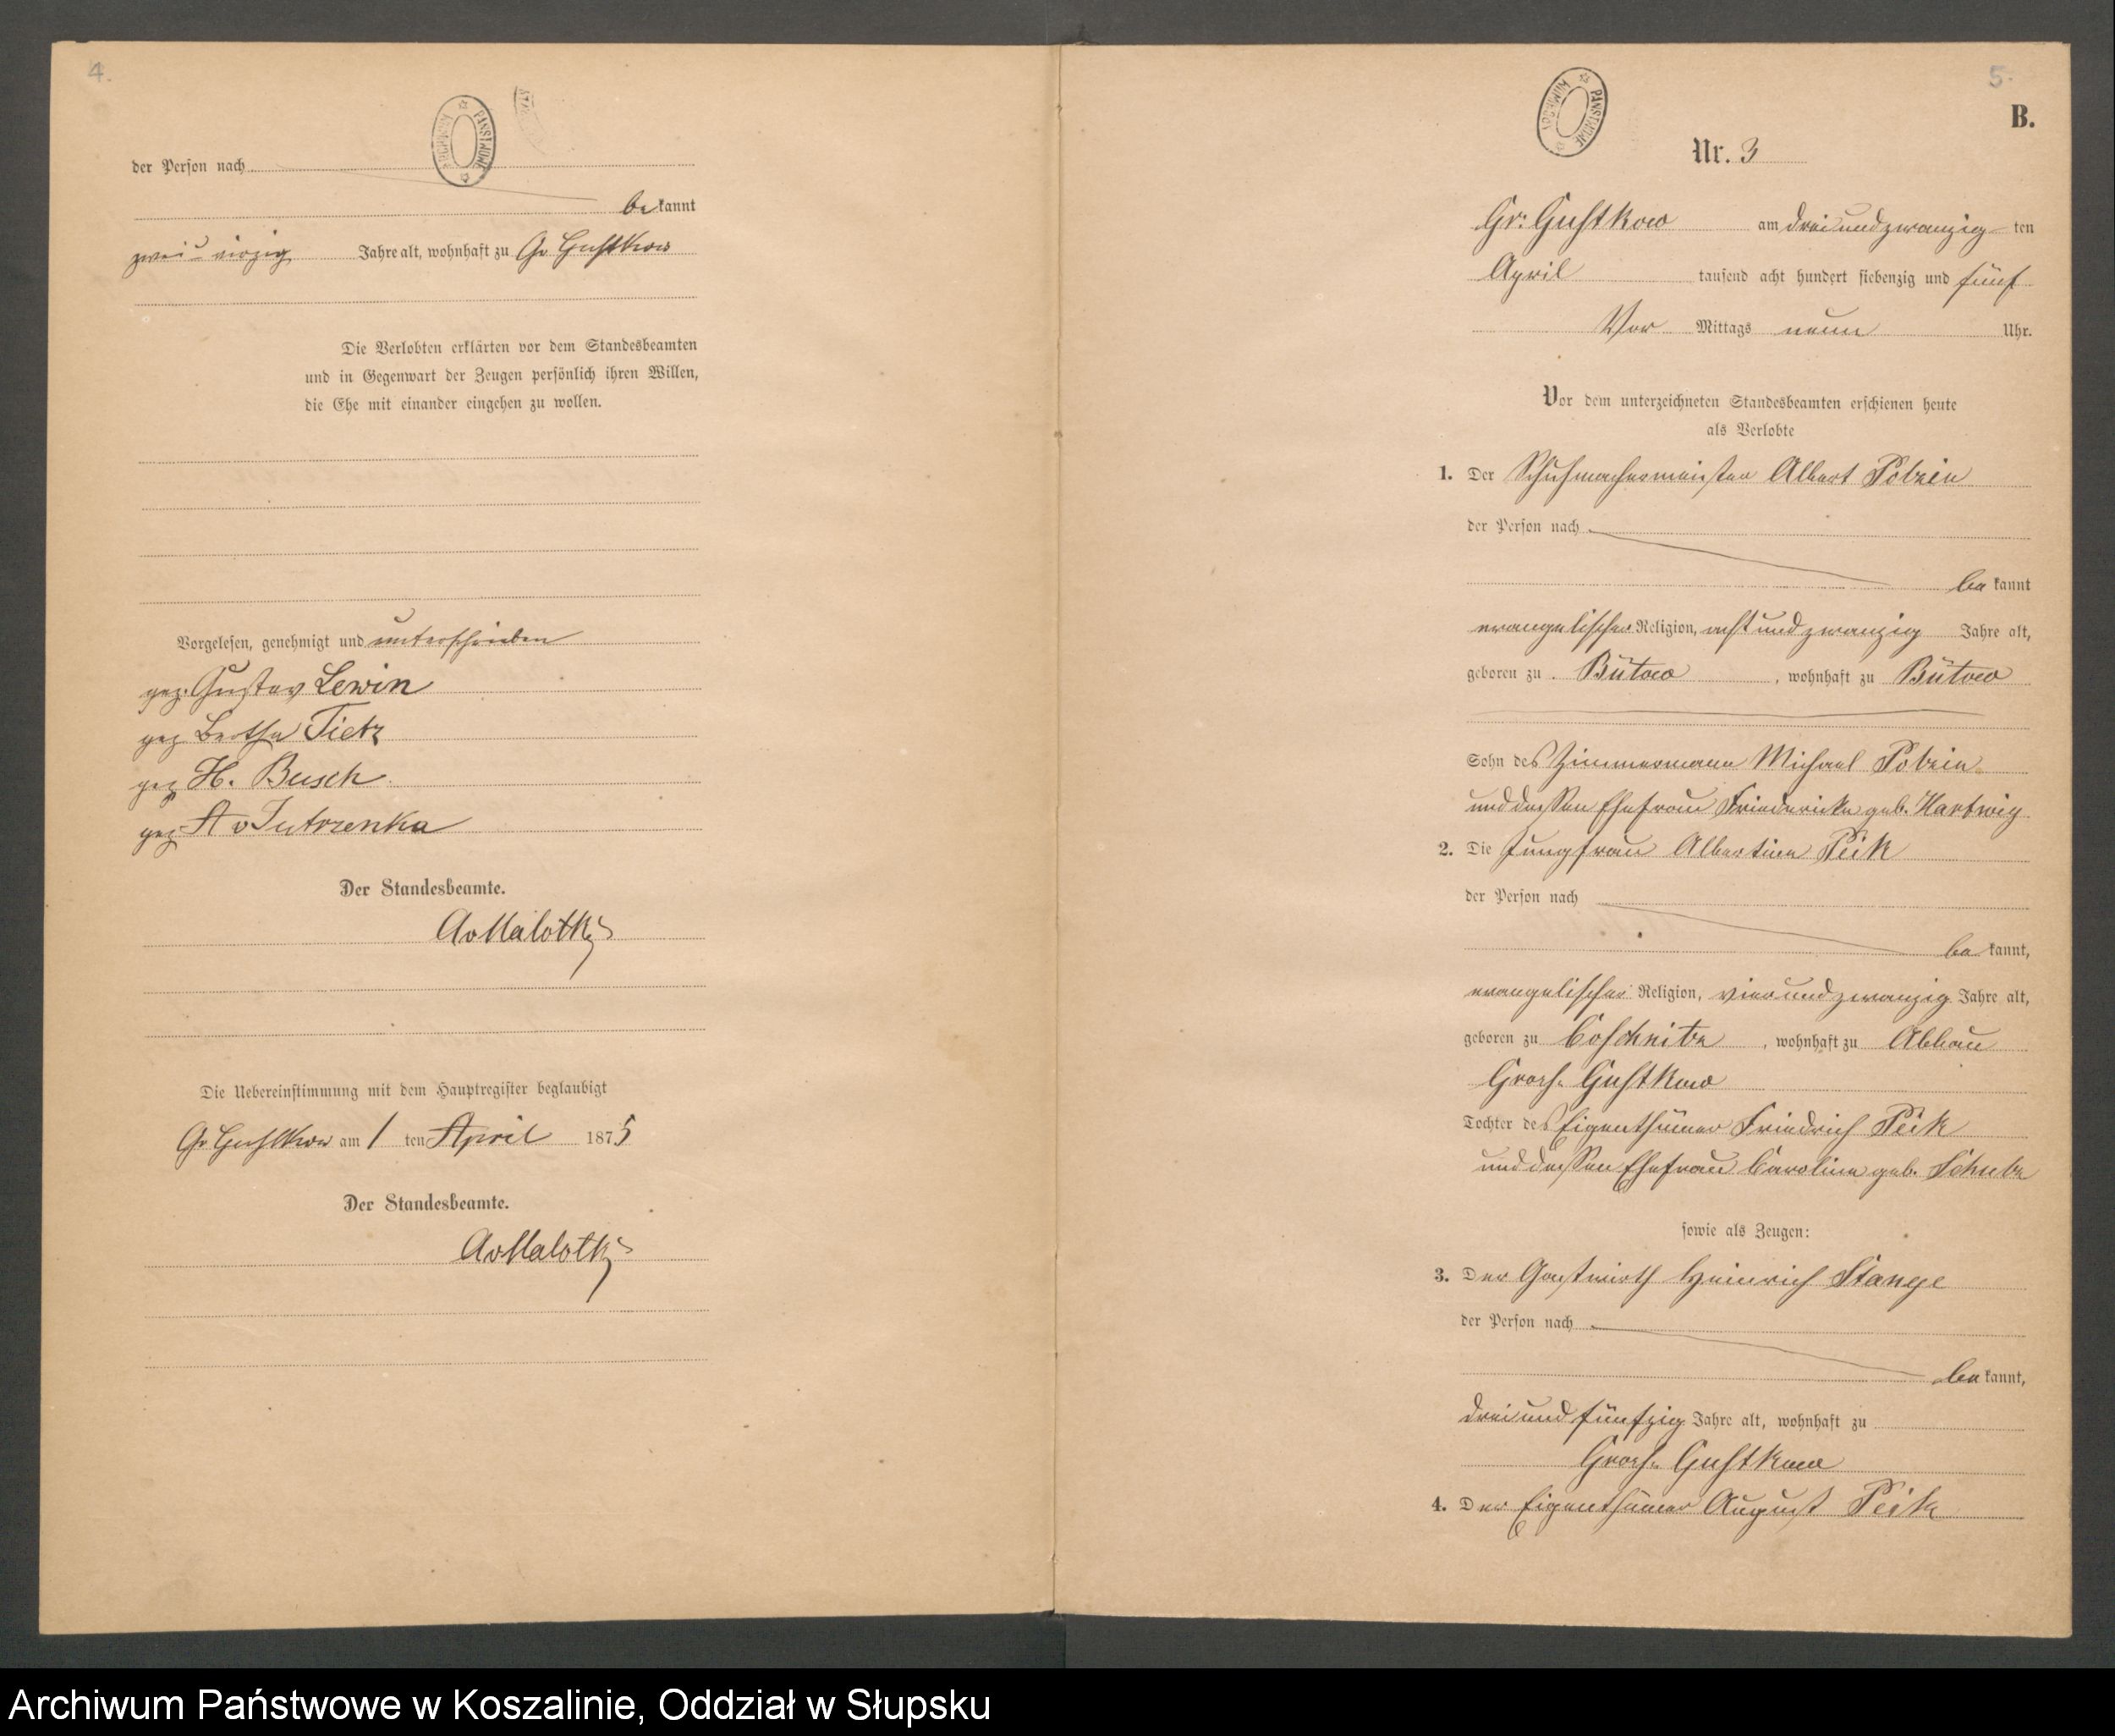 4.
der Person nach
bekannt
zwei u vierzig Jahre alt, wohnhaft zu Gr Gustkow
Die Verlobten erklärten vor dem Standesbeamten
und in Gegenwart der Zeugen persönlich ihren Willen,
die Ehe mit einander eingehen zu wollen.
Vorgelesen, genehmigt und unterschrieben
gez. Gustav Lewin
gez Bertha Tietz
gez H. Busch
gez A v Jutrzenka
Der Standesbeamte.
AvMalotky
Die Uebereinstimmung mit dem Hauptregister beglaubigt
Gr Gustkow am 1 ten April 1875
Der Standesbeamte.
AvMalotky
5.
B.
Nr. 3
Gr. Gustkow am dreiundzwanzig ten
April tausend acht hundert siebenzig und fünf
Vor Mittags neun Uhr.
Vor dem unterzeichneten Standesbeamten erschienen heute
als Verlobte
1. Der Schuhmachermeister Albert Pobzin
der Person nach
bekannt
evangelischer Religion, achtundzwanzig Jahre alt,
geboren zu Bütow, wohnhaft zu Bütow
Sohn des Zimmermann Michael Pobzin
und dessen Ehefrau Friedericke geb. Hartwig
2. Die Jungfrau Albertine Peik
der Person nach
bekannt,
evangelischer Religion, vierundzwanzig Jahre alt,
geboren zu, wohnhaft zu Abbau
Gross Gustkow
Tochter des Eigenthümer Friedrich Peik
und dessen Ehefrau Caroline geb.
sowie als Zeugen:
3. Der Gastwirth Heinrich Stange
der Person nach
bekannt,
dreiundfünfzig Jahre alt, wohnhaft zu
Gross Gustkow
4. Der Eigenthümer August Peik
Archiwum Państwowe w Koszalinie, Oddział w Słupsku